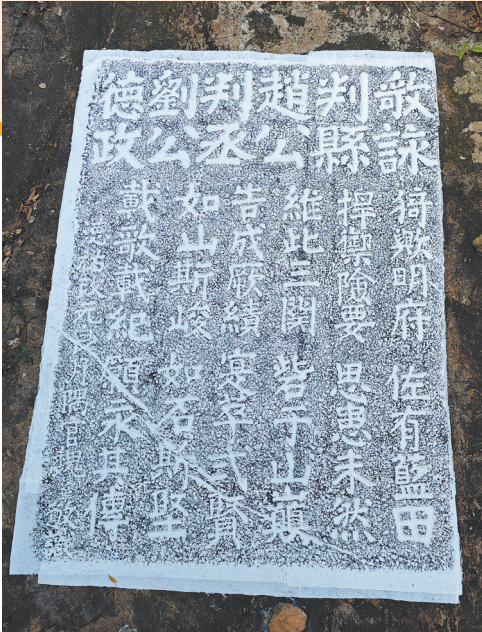 歌詠
判縣
趙公
判丞
劉公
徳政
猗歟明府 佐有藍田
捍禦險要 思患未然
維此三関 砦于山巔
告成厥績 寔 弍賢
如山斯峻 如石斯堅
載歌載紀 願永且傳